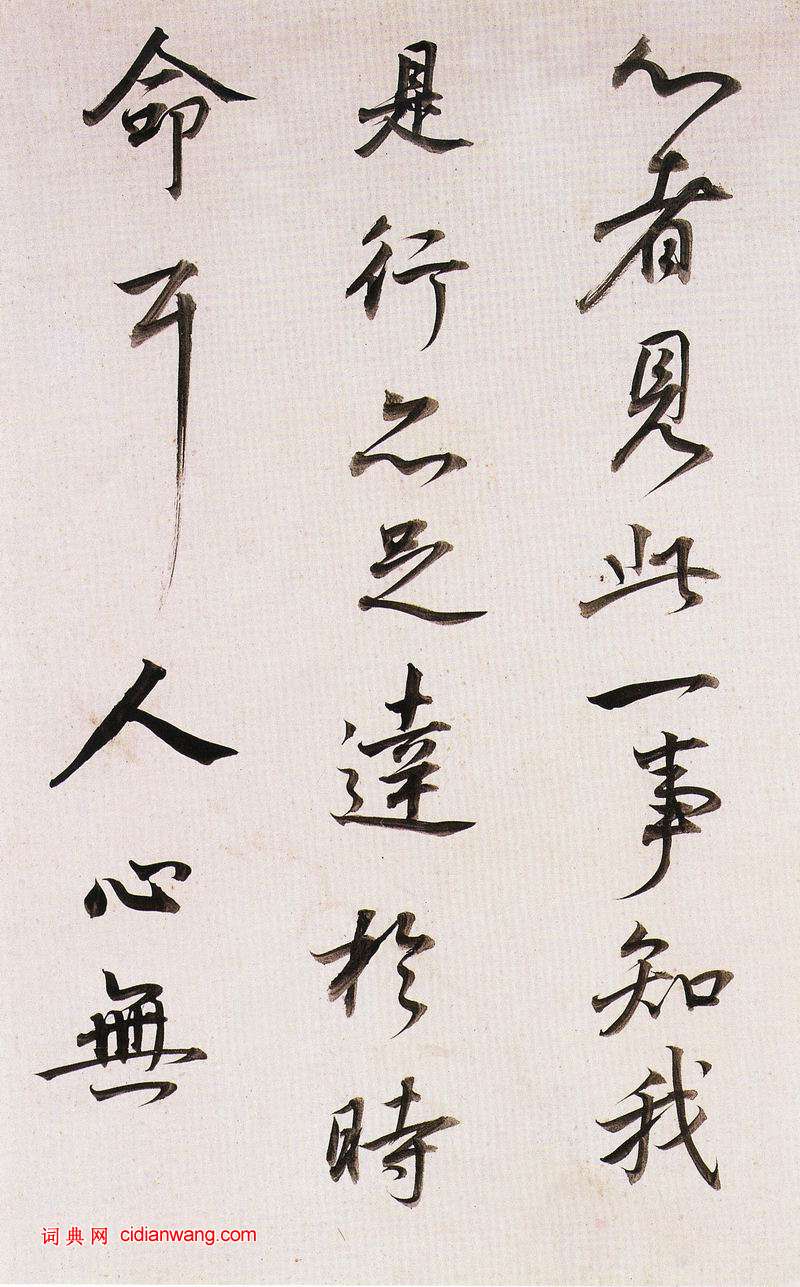 心者見此一事知我
是行亦足達於時
命耳人心無
词典网 cidianwang.com